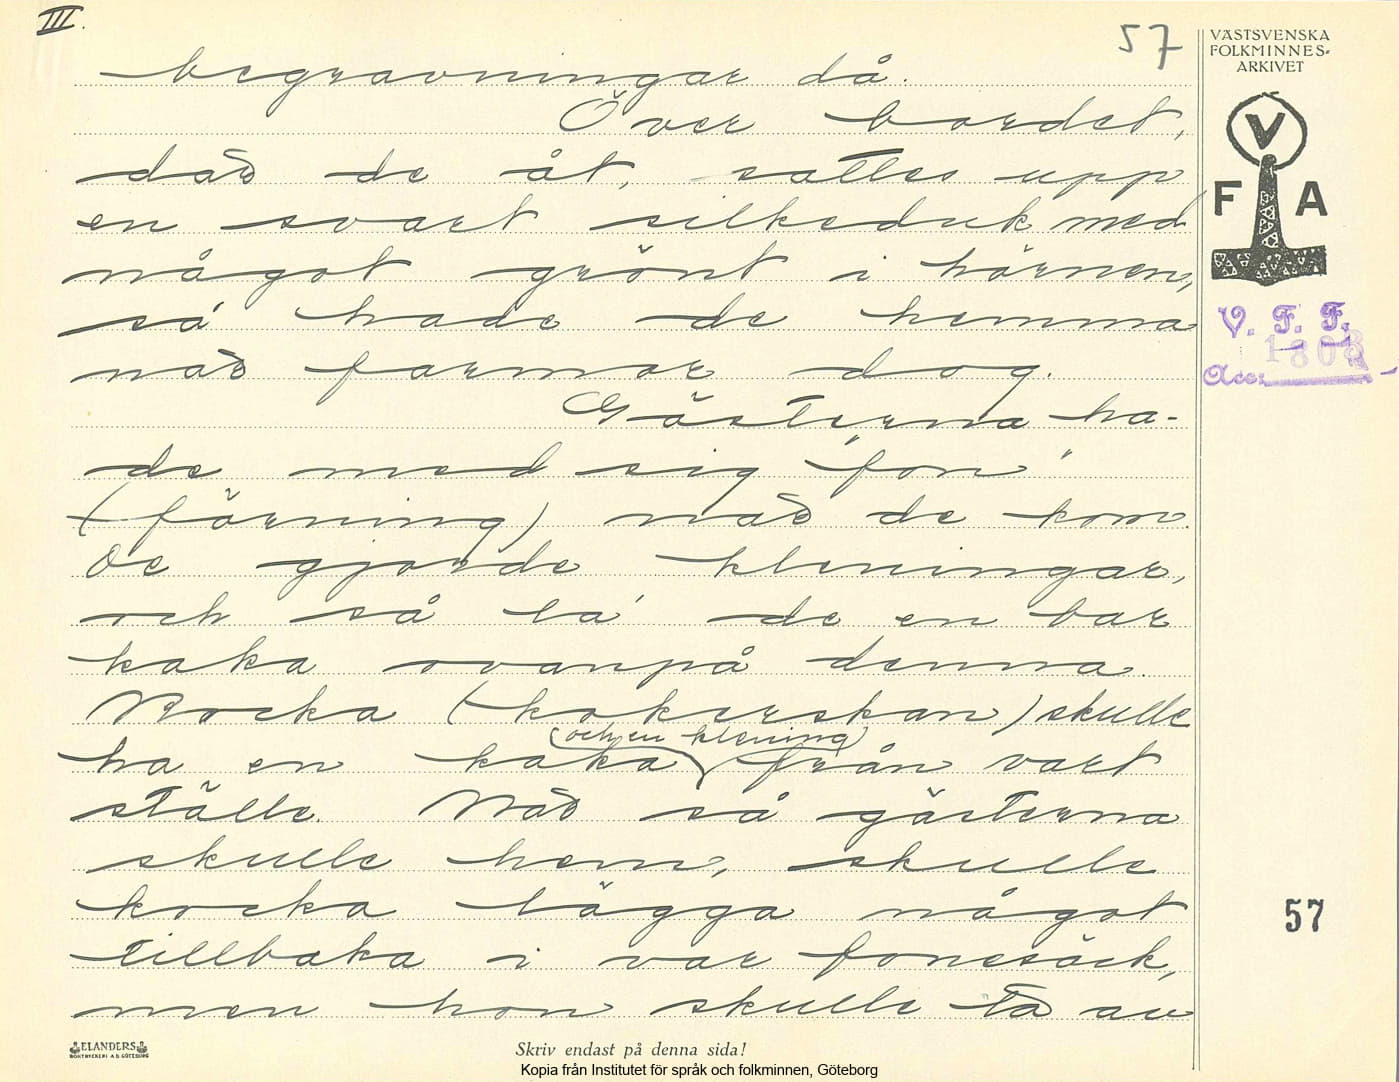 III.
57
VÄSTSVENSKA
FOLKMINNES-
ARKIVET
V
F A
V. F. F.
1808
Acc:
begravningar då.
Över bordet,
där de åt, sattes upp
en svart silkeduk med
något grönt i hörnen,
så hade de hemma
när farmor dog.
Gästerna ha-
de med sig "fon"
(förning) när de kom.
De gjorde kleningar,
och så la' de en bar
kaka ovanpå denna.
Kocka (kokerskan) skulle
(och en klening)
ha en kaka från vart
ställe. När så gästerna
skulle hem, skulle
kocka lägga något
tillbaka i var fonesäck,
men hon skulle ta av
57
ELANDERS
BOKTRYCKERI A.B. GÖTEBORG
Skriv endast på denna sida!
Kopia från Institutet för språk och folkminnen, Göteborg